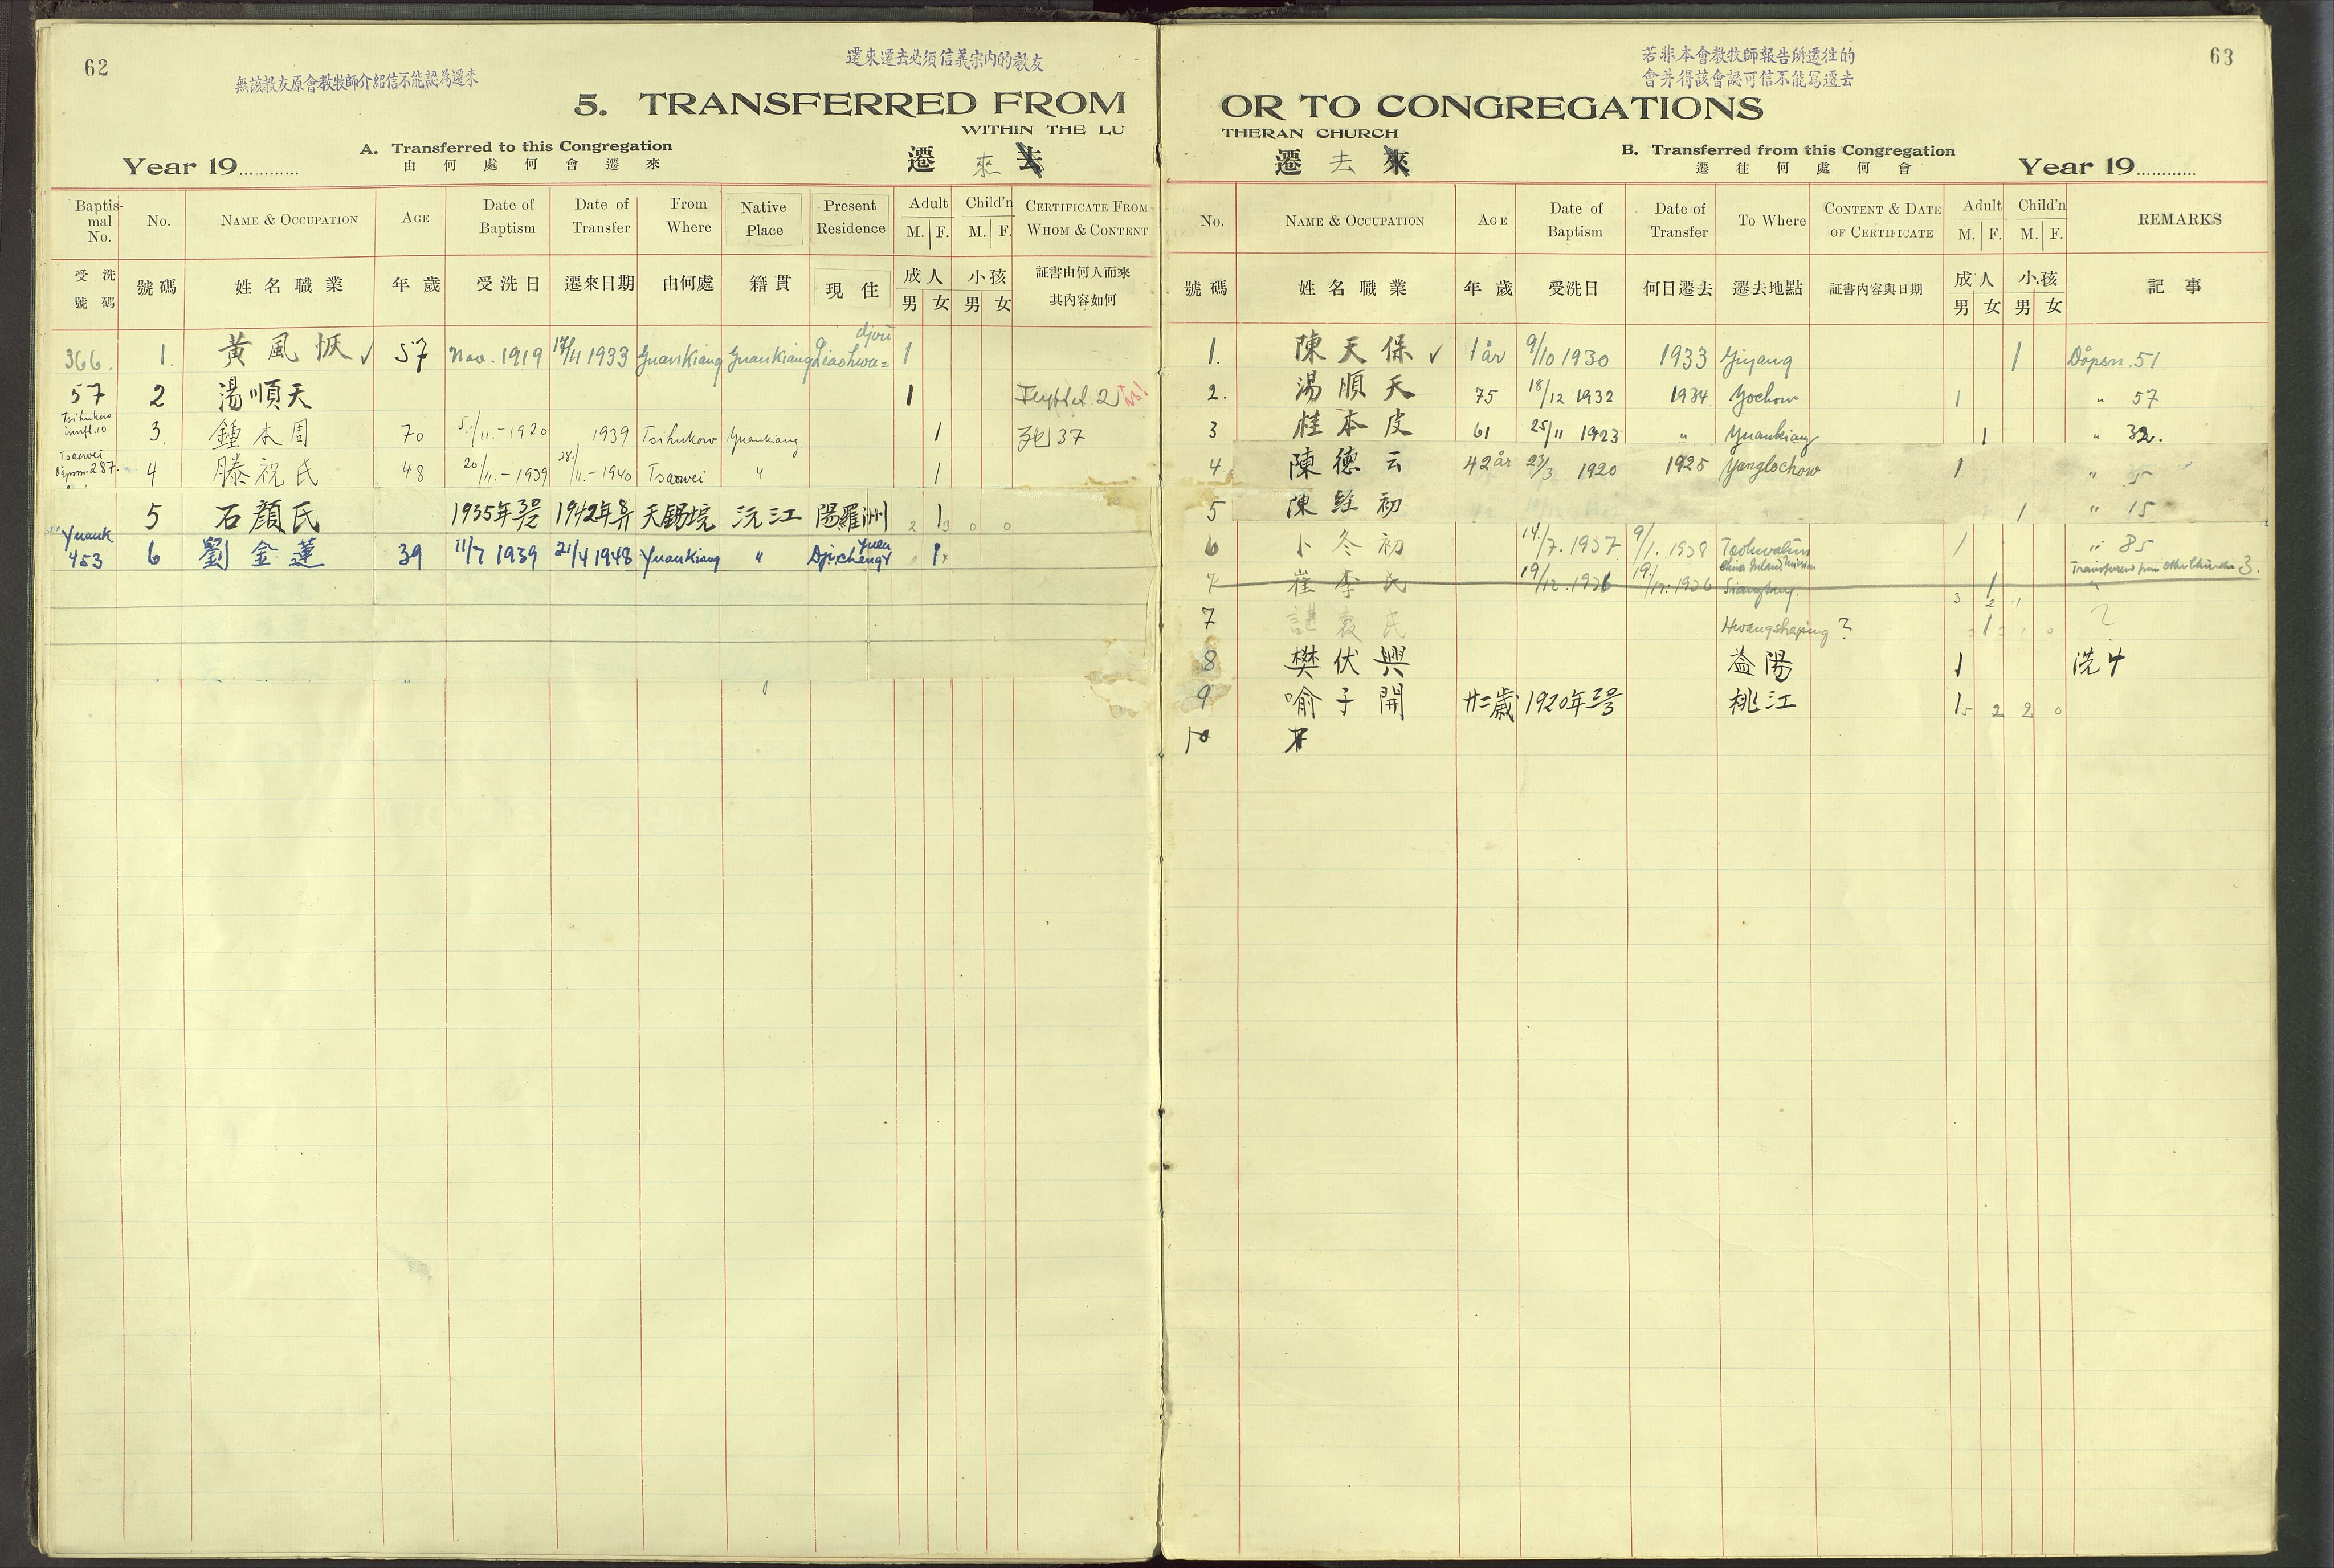 62
無該教友原會教牧師介紹信不能認為遷來
遷來遷去必須信義宗內的教友
5. TRANSFERRED FROM
WITHIN THE LU
A. Transferred to this Congregation
Year 19............
由何處何會遷來
遷 來 去
Baptismal No. No. NAME & OCCUPATION AGE Date of Baptism Date of Transfer From Where Native Place Present Residence Adult M. F. Child'n M. F. CERTIFICATE FROM WHOM & CONTENT
受洗號碼 號碼 姓名職業 年歲 受洗日 遷來日期 由何處 籍貫 現住 成人 男 女 小孩 男 女 証書由何人而來其內容如何
366. 1. 黃風 ✓ 57 Nov. 1919 17/11 1933 Yuankiang Yuankiang 1
57 2 湯順天 1
Tsihukow 10 3. 鍾本周 70 5./11.-1920 1939 Tsihukow Yuankiang 1 死37
Tsaowei 287. 4 滕祝氏 48 20/11.-1939 28./11.-1940 Tsaowei " 1
5 石顏氏 1935年 1942年 天錫垸 沅江 陽羅洲 2 1 3 0 0
Yuank 453 6 劉金蓮 39 11/7 1939 21/4 1948 Yuankiang " 1
63
若非本會教牧師報告所遷往的
會并得該會認可信不能寫遷去
OR TO CONGREGATIONS
THERAN CHURCH
B. Transferred from this Congregation
Year 19............
遷 去 來
遷往何處何會
No. NAME & OCCUPATION AGE Date of Baptism Date of Transfer To Where CONTENT & DATE OF CERTIFICATE Adult M. F. Child'n M. F. REMARKS
號碼 姓名職業 年歲 受洗日 何日遷去 遷去地點 証書內容與日期 成人 男 女 小孩 男 女 記事
1. 陳天保 ✓ 1 år 9/10 1930 1933 Yiyang 1 Döpsn. 51
2. 湯順天 75 18/12 1932 1934 Yochow 1 " 57
3 桂本皮 61 25/11 1923 " Yuankiang 1 " 32.
4 陳德云 42 år 23/3 1920 1925 Yanglochow 1 " 5
5 陳經初 1 " 15
6 卜冬初 14./7. 1937 9/1. 1938 Taohwalun 1 " 85
7 崔李氏 19/12. 1936 19./12. 1936 China Inland Mission Siangtang. 1 Transferred from other Churches 3.
3 2 1
7 諶袁氏 Hwangshaping? 1
8 樊伏興 益陽 1 洗4
9 喻子開 廿二歲 1920年 桃江 1 5 2 2 0
10